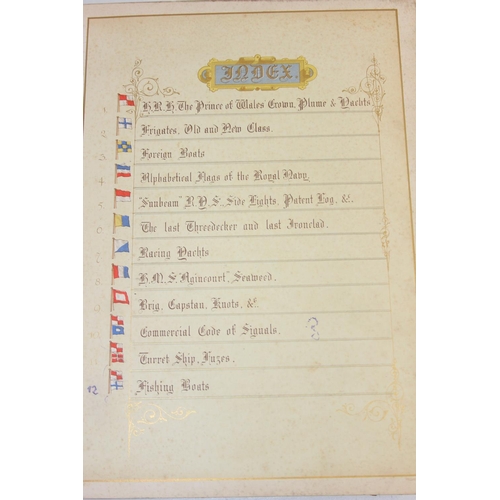 INDEX.
H.R.H. The Prince of Wales Crown, Plume & Yachts
Frigates, Old and New Class.
Foreign Boats
Alphabetical Flags of the Royal Navy.
"Sunbeam" R.Y.S. Side Lights, Patent Log, &.
The last Threedecker and last Ironclad.
Racing Yachts
H.M.S. "Agincourt", Seaweed.
Brig, Capstan, Knots, &.
Commercial Code of Signals.
Turret Ship, Fuzes.
12 Fishing Boats